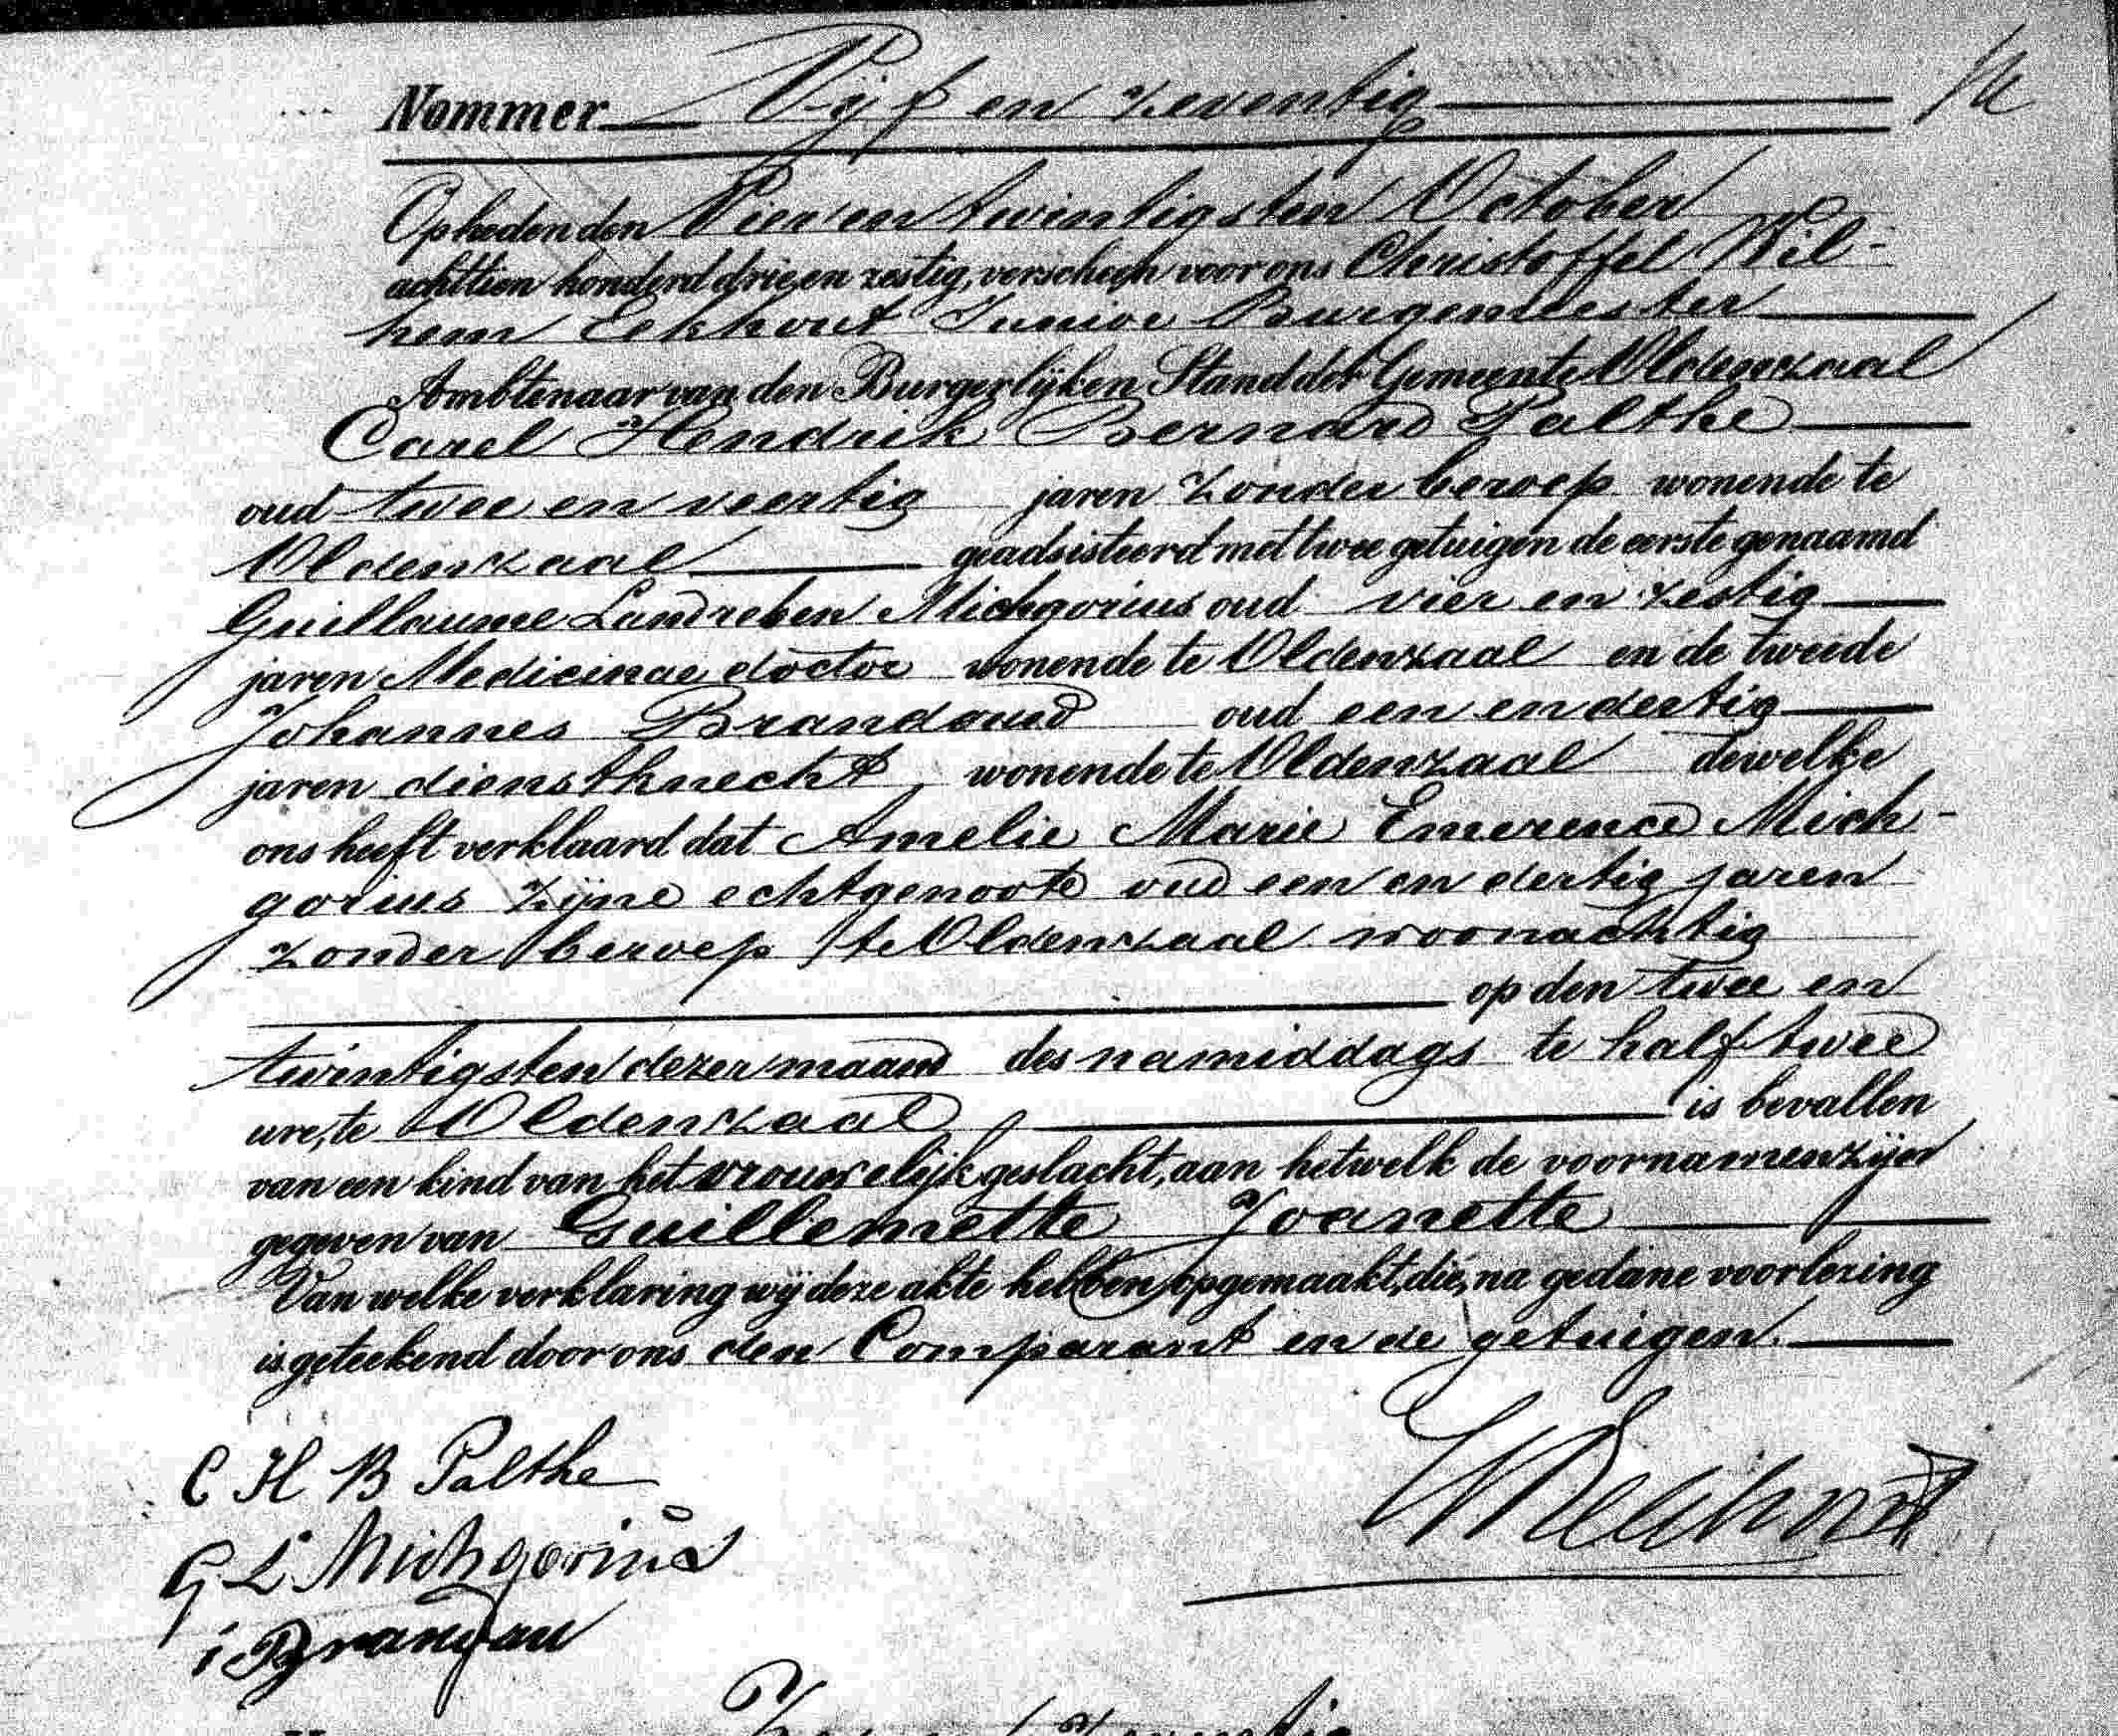 Nommer Vijf en zeventig
Op heden den Vier en twintigsten October
achttien honderd drie en zestig, verscheen voor ons Christoffel Wil-
hem Eekhout Junior Burgemeester
Ambtenaar van den Burgerlijken Stand der Gemeente Oldenzaal
Carel Hendrik Bernard Palthe
oud twee en veertig jaren zonder beroep wonende te
Oldenzaal geadsisteerd met twee getuigen de eerste genaamd
Guillaume Landreben Michgorius oud vier en zestig
jaren Medicinae doctor wonende te Oldenzaal en de tweede
Johannes Brandoud oud een en dertig
jaren dienstknecht wonende te Oldenzaal dewelke
ons heeft verklaard dat Amelie Marie Emerence Mich-
gorius zijne echtgenoote oud een en dertig jaren
zonder beroep te Oldenzaal woonachtig
op den twee en
twintigsten dezer maand des namiddags te half twee
ure, te Oldenzaal is bevallen
van een kind van het vrouwelijk geslacht, aan hetwelk de voornamen zijn
gegeven van Guillemette Joanette
Van welke verklaring wij deze akte hebben opgemaakt, die, na gedane voorlezing
is geteekend door ons den Comparant en de getuigen.
C H B Palthe
G L Michgorius
CWEekhout
i Brandau